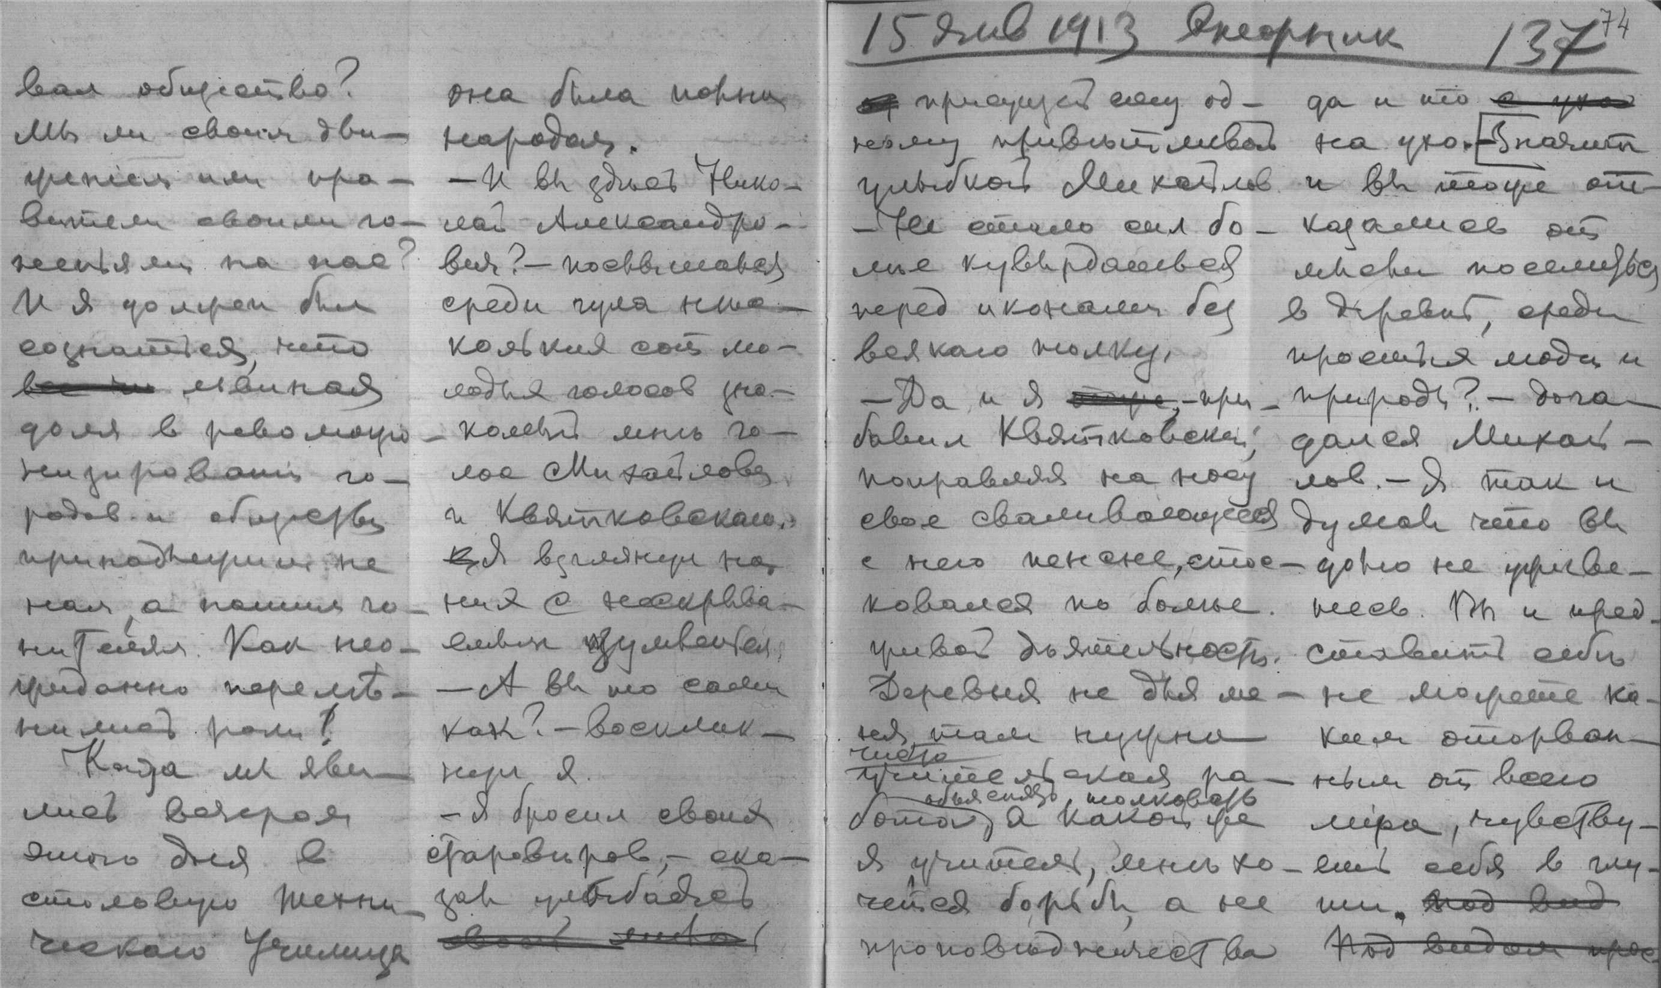 вал общество?
Мы ли своим дви-
жением или пра-
вители своими го-
неньями на нас?
И я должен был
сознаться, что
главная
доля в революцио-
низировании го-
родов и общества
принадлежит не
нам, а нашим го-
нителям. Как нео-
жиданно переме-
нились роли!
Когда мы яви-
лись вечером
этого дня в
столовую Техни-
ческаго Училища
она была полна
народом.
— И вы здесь Нико-
лай Александро-
вич? — послышался
среди гула нѣс-
кольких сот мо-
лодых голосов зна-
комый мнѣ го-
лос Михайлова
и Квятковскаго.
Я взглянул на
них с нескрыва-
емым изумленьем.
— А вы то сами
как? — восклик-
нул я.
— Я бросил своих
староверов, — ска-
зал улыбаясь
15 янв 1913 Вторник 137 74
присущей ему од-
ному приветливой
улыбкой Михайлов
— Не стало сил бо-
лѣе кувыркаться
перед иконами без
всякаго толку.
— Да и я — при-
бавил Квятковский,
поправляя на носу
свое сваливающееся
с него пенсне, стос-
ковался по более
живой дѣятельности.
Деревня не для ме-
ня, там нужна
чисто
учительская ра-
объяснять, толковать
бота, а какой же
я учитель, мнѣ хо-
чется борьбы, а не
проповѣдничества
да и то
на ухо. — Значит
и вы тоже от-
казались от
мысли поселиться
в деревнѣ, среди
простых людей и
природы? — дога-
дался Михай-
лов. — Я так и
думал что вы
долго не уживе-
тесь. Вы и пред-
ставить себѣ
не можете ка-
ким оторван-
ным от всего
мира, чувству-
ешь себя в глу-
ши. под вид
Под видом